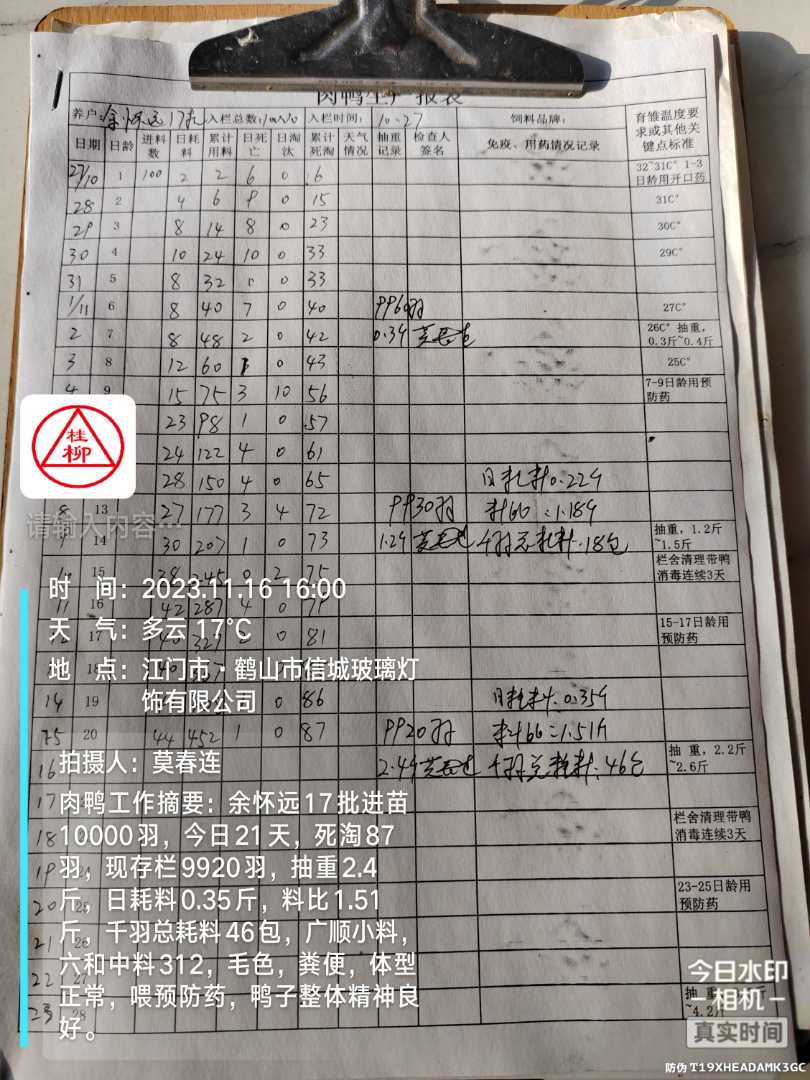 肉鸭生产报表
养户: 余怀远17批 入栏总数: 入栏时间: 10.27 饲料品牌: 育雏温度要求或其他关键点标准
日期 日龄 进料数 日耗料 累计用料 日死亡 日淘汰 累计死淘 天气情况 抽重记录 检查人签名 免疫、用药情况记录
27/10 1 100 2 2 6 0 6 32~31C° 1-3日龄用开口药
28 2 4 6 9 0 15 31C°
29 3 8 14 8 0 23 30C°
30 4 10 24 10 0 33 29C°
31 5 8 32 0 0 33
1/11 6 8 40 7 0 40 9960羽 27C°
2 7 8 48 2 0 42 0.39 莫春连 26C° 抽重,0.3斤~0.4斤
3 8 12 60 1 0 43 25C°
4 9 15 75 3 10 56 7-9日龄用预防药
23 98 1 0 57
24 122 4 0 61
28 150 4 0 65 日耗料0.22斤
8 13 27 177 3 4 72 9930羽 料比=1.18斤
9 14 30 207 1 0 73 1.2斤 莫春连 千羽总耗料.18包 抽重,1.2斤~1.5斤
15 245 0 2 75 栏舍清理带鸭消毒连续3天
11 16 42 287 4 0
12 17 81 15-17日龄用预防药
18
14 19 0 86 日耗料:0.35斤
15 20 44 452 1 0 87 9920羽 料比=1.51斤
16 2.4斤 莫春连 千羽总耗料:46包 抽重,2.2斤~2.6斤
17
18 栏舍清理带鸭消毒连续3天
19
20 23-25日龄用预防药
21
22
23 28 抽重 ~4.2斤
桂柳
请输入内容…
时 间：2023.11.16 16:00
天 气：多云 17°C
地 点：江门市·鹤山市信城玻璃灯
饰有限公司
拍摄人：莫春连
肉鸭工作摘要：余怀远17批进苗
10000羽，今日21天，死淘87
羽，现存栏9920羽，抽重2.4
斤，日耗料0.35斤，料比1.51
斤，千羽总耗料46包，广顺小料，
六和中料312，毛色，粪便，体型
正常，喂预防药，鸭子整体精神良
好。
今日水印
相机
真实时间
防伪 T19XHEADAMK3GC